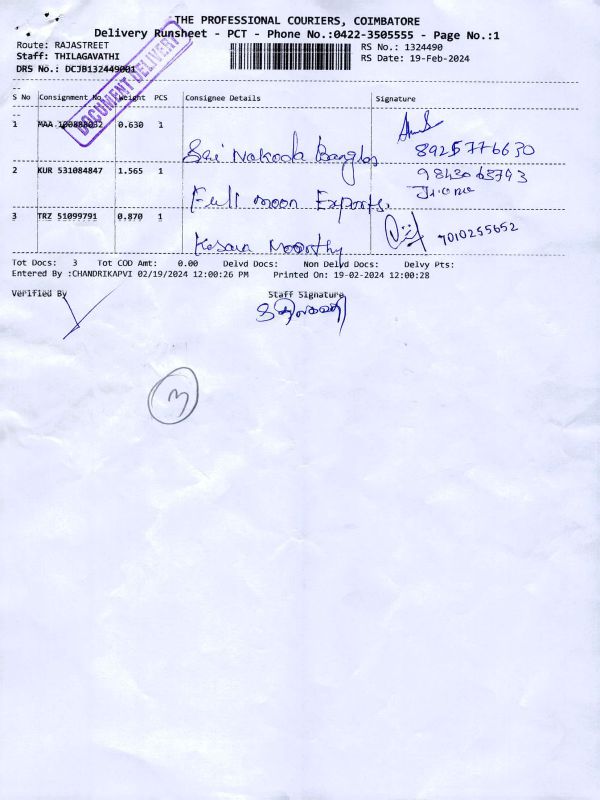 THE PROFESSIONAL COURIERS, COIMBATORE
Delivery Runsheet - PCT - Phone No.:0422-3505555 - Page No.:1
Route: RAJASTREET
RS No.: 1324490
Staff: THILAGAVATHI
RS Date: 19-Feb-2024
DRS No.: DCJB132449001
DOCUMENT DELIVERY
S No Consignment No. Weight PCS Consignee Details Signature
1 MAA 100888032 0.630 1
Sri Nakoda Bangles 8925776630
2 KUR 531084847 1.565 1
Full moon Exports.
3 TRZ 51099791 0.870 1
Kesava Moorthy 7010255652
Tot Docs: 3 Tot COD Amt: 0.00 Delvd Docs: Non Delvd Docs: Delvy Pts:
Entered By :CHANDRIKAPVI 02/19/2024 12:00:26 PM Printed On: 19-02-2024 12:00:28
Verified By Staff Signature
3